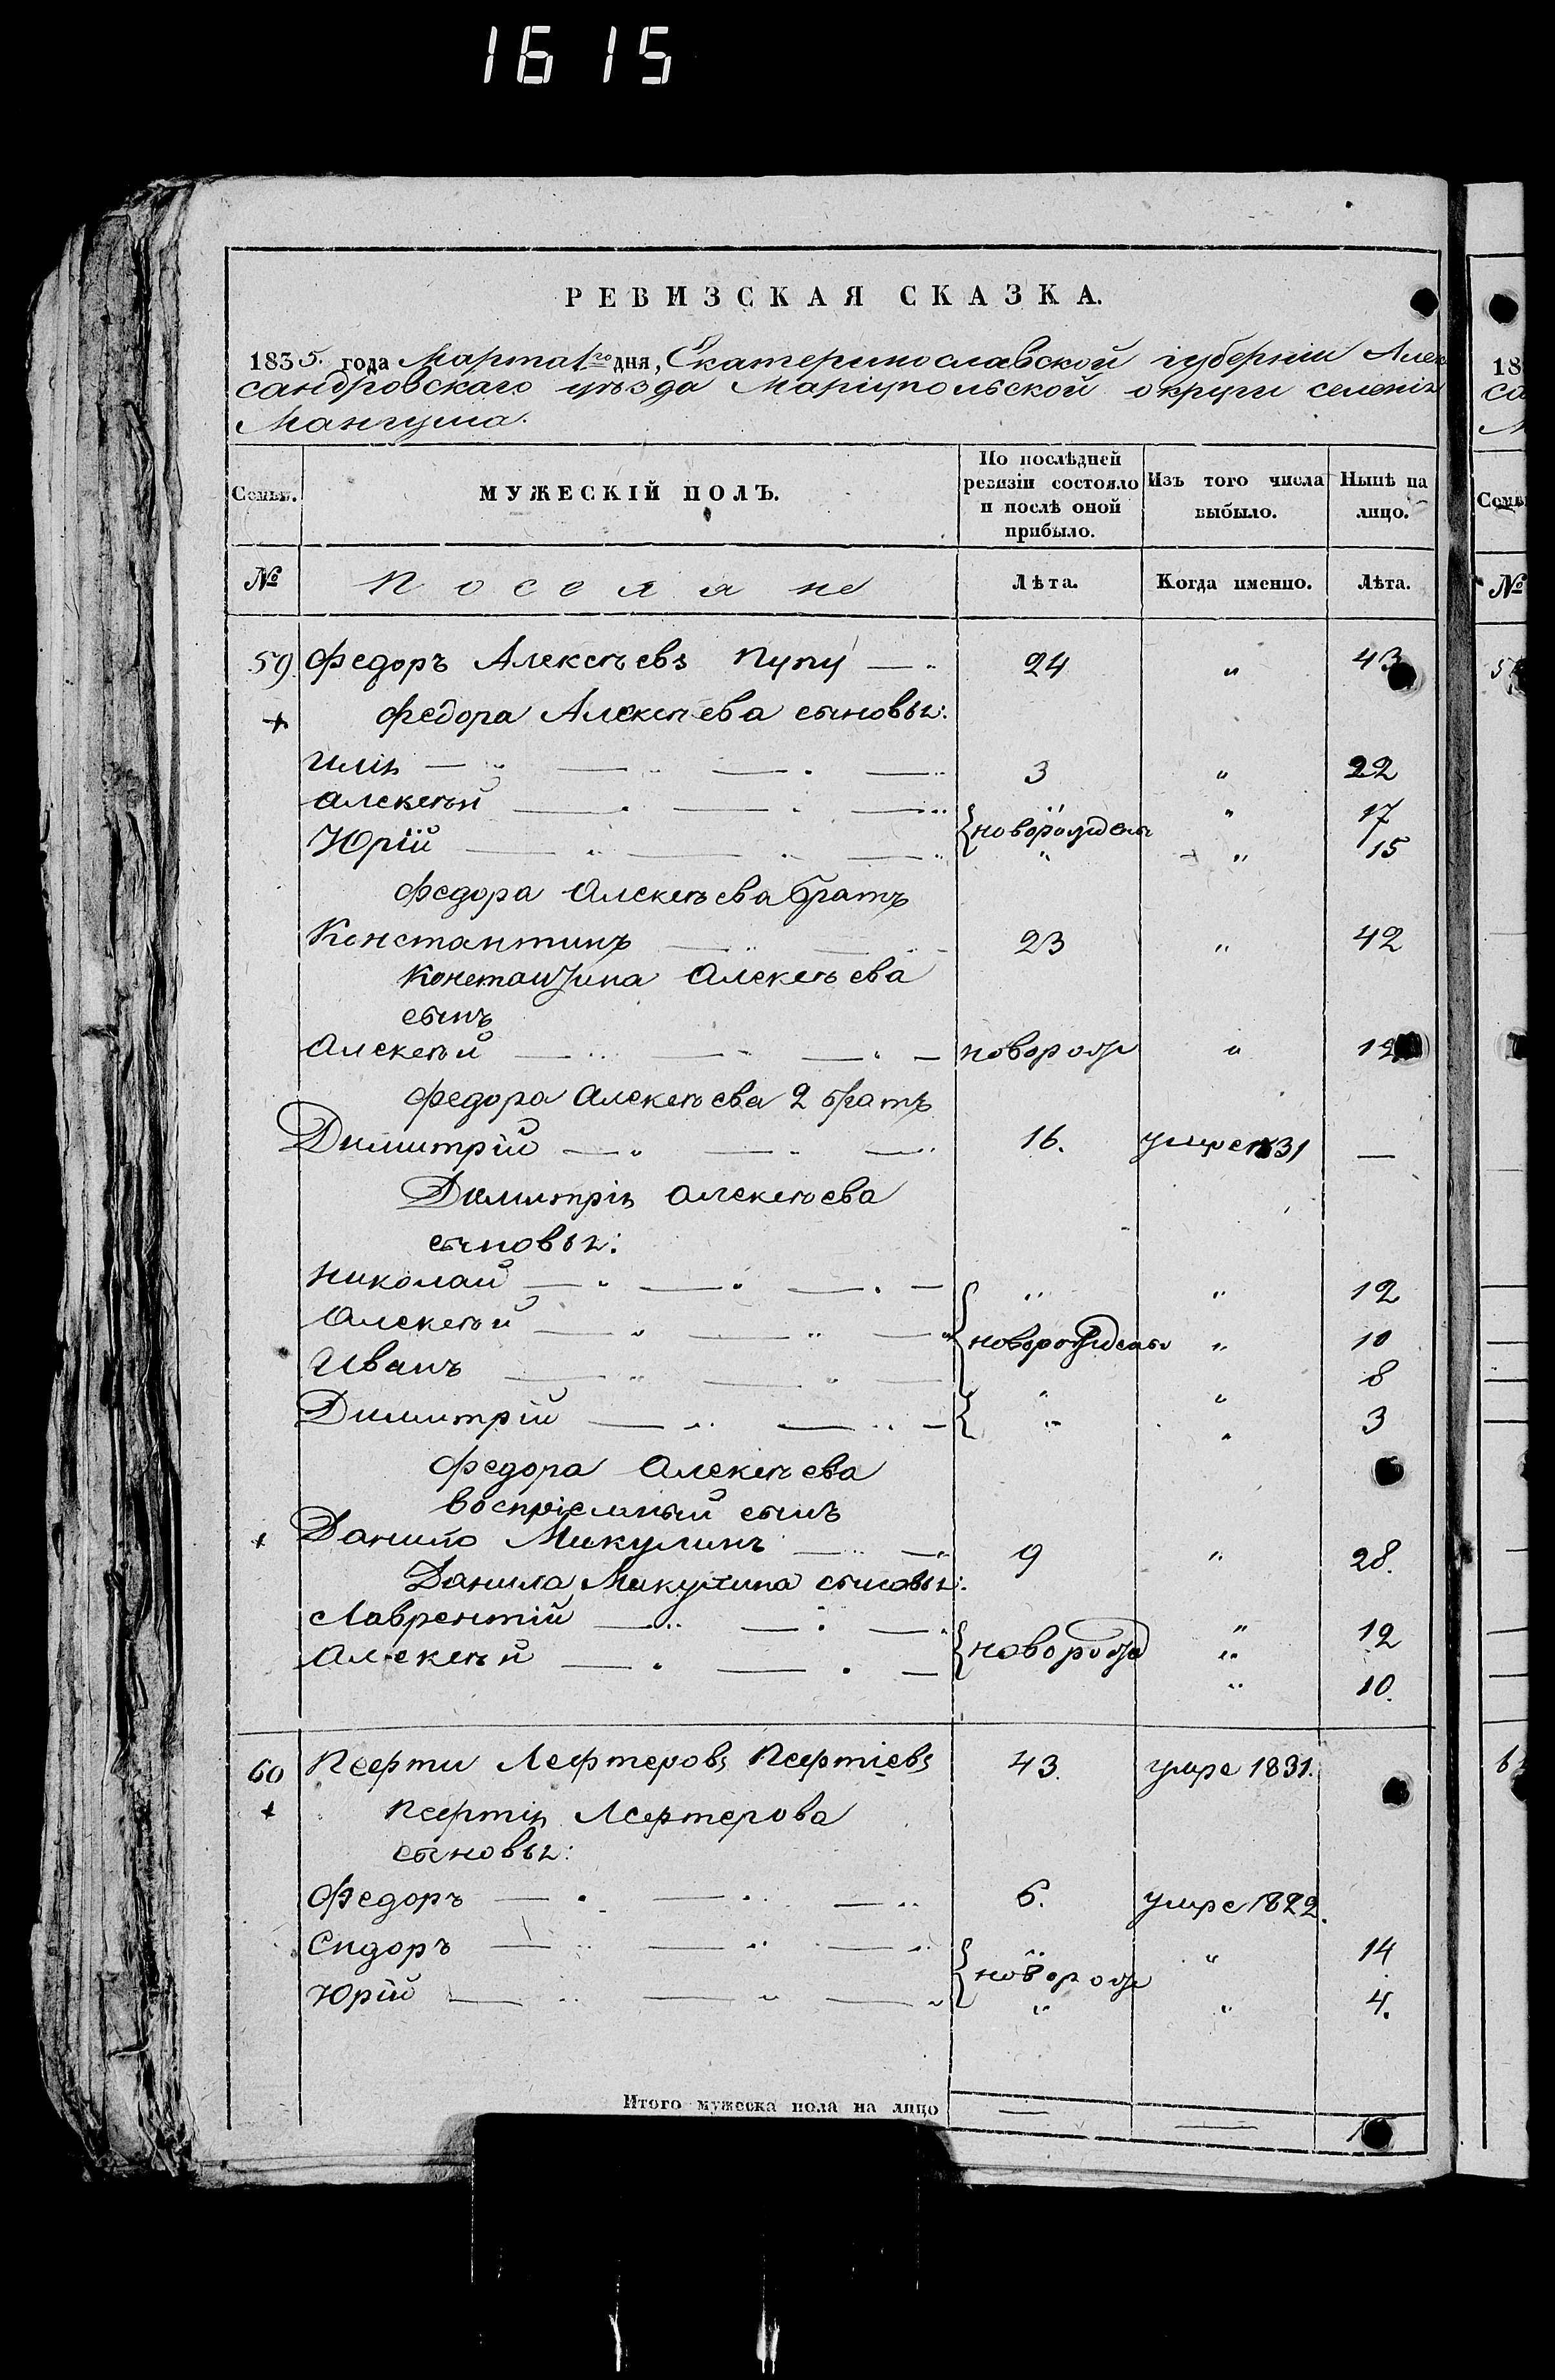 1615
РЕВИЗСКАЯ СКАЗКА.
1835. года Марта 1го дня, Екатеринославской губерніи Алек
сандровскаго уѣзда Маріупольской округи селенія
Мангуша.
Семьи. МУЖЕСКІЙ ПОЛЪ. По послѣдней ревизіи состояло и послѣ оной прибыло. Изъ того числа выбыло. Нынѣ на лицо.
№ Поселяне Лѣта. Когда именно. Лѣта.
59. Федоръ Алексѣевъ Пупу — „ 24 „ 43
+ Федора Алексѣева сыновья:
Илія — „ — „ — „ — „ 3 „ 22
Алексѣй — „ — „ — „ { „ „ 17
Юрій — „ — „ — „ новорожден „ „ 15
Федора Алексѣева братъ
Константинъ — „ — „ 23 „ 42
Константина Алексѣева
сынъ
Алексѣй — „ — „ — „ — новорож „ 12
Федора Алексѣева 2 братъ
Димитрій — „ — „ — „ 16. умре 1831 —
Димитрія Алексѣева
сыновья:
Николай — „ — „ — „ — { „ „ 12
Алексѣй — „ — „ — „ новорожден „ 10
Иванъ — „ — „ — „ „ 8
Димитрій — „ — „ — { „ „ 3
Федора Алексѣева
воспріемный сынъ
+ Данило Микулинъ — „ — „ 9 „ 28.
Данила Микулина сыновья:
Лаврентій — „ — „ — „ { новорож „ 12
Алексѣй — „ — „ — „ 10.
60 Пефти Лефтеровъ Пефтіевъ 43. умре 1831.
+ Пефтія Лефтерова
сыновья:
Федоръ — „ — „ — „ 6. умре 1822.
Сидоръ — „ — „ — „ { новорож „ 14
Юрій — „ — „ — „ „ „ 4.
Итого мужеска пола на лицо — —
18
са
М
Семьи
№